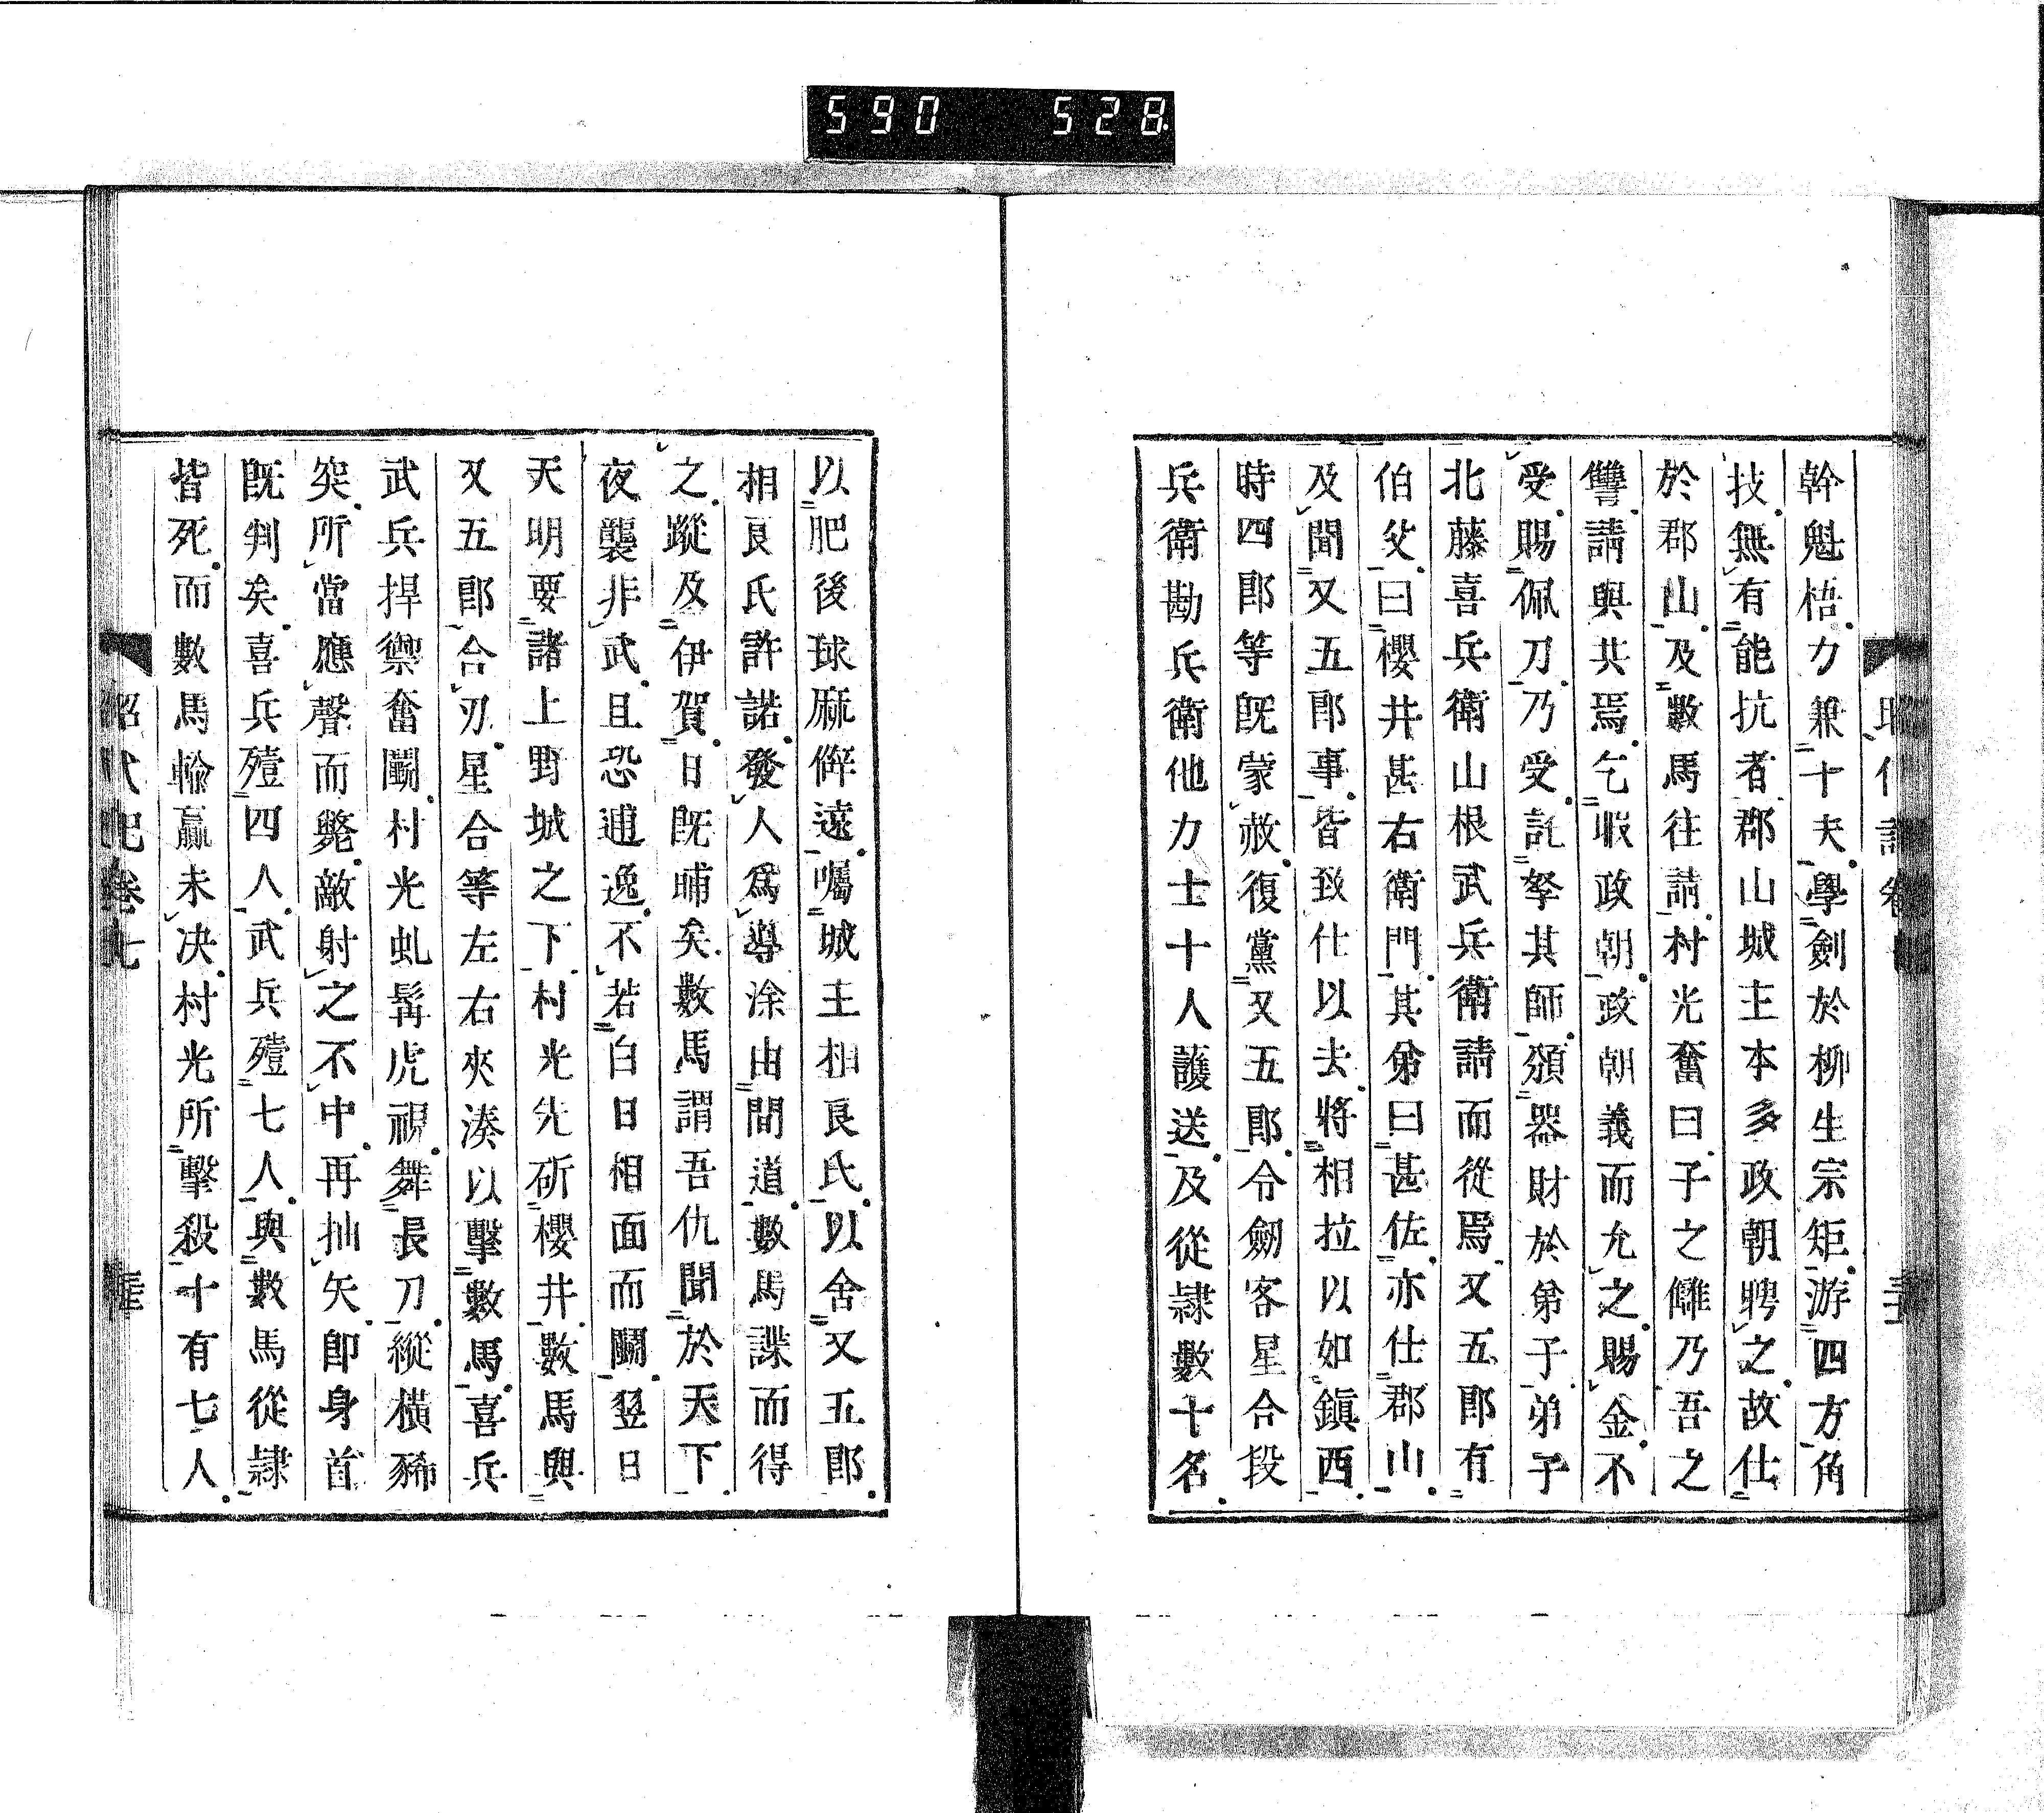 590 528
幹魁梧力兼十夫學劍於柳生宗矩游四方角
技無有能抗者郡山城主本多政朝聘之故仕
於郡山及數馬往請村光奮曰子之讎乃吾之
讐請與共焉乞暇政朝政朝義而允之賜金不
受賜佩刀乃受託孥其師頒器財於弟子弟子
北藤喜兵衛山根武兵衛請而從焉又五郎有
伯父曰櫻井甚右衛門其弟曰甚佐亦仕郡山
及聞又五郎事皆致仕以去將相拉以如鎭西
時四郎等既蒙赦復黨又五郎令劒客星合段
兵衛勘兵衛他力士十人護送及從隷數十名
以肥後球麻僻遠囑城主相良氏以舍又五郎
相良氏許諾發人爲導涂由間道數馬諜而得
之蹤及伊賀日既晡矣數馬謂吾仇聞於天下
夜襲非武且恐逋逸不若白日相面而鬭翌日
天明要諸上野城之下村光先斫櫻井數馬與
又五郎合刃星合等左右夾湊以擊數馬喜兵
武兵捍禦奮鬭村光虬髯虎視舞長刀縱橫豨
突所當應聲而斃敵射之不中再抽矢卽身首
既判矣喜兵殪四人武兵殪七人與數馬從隷
皆死而數馬輸贏未決村光所擊殺十有七人
昭代記卷七